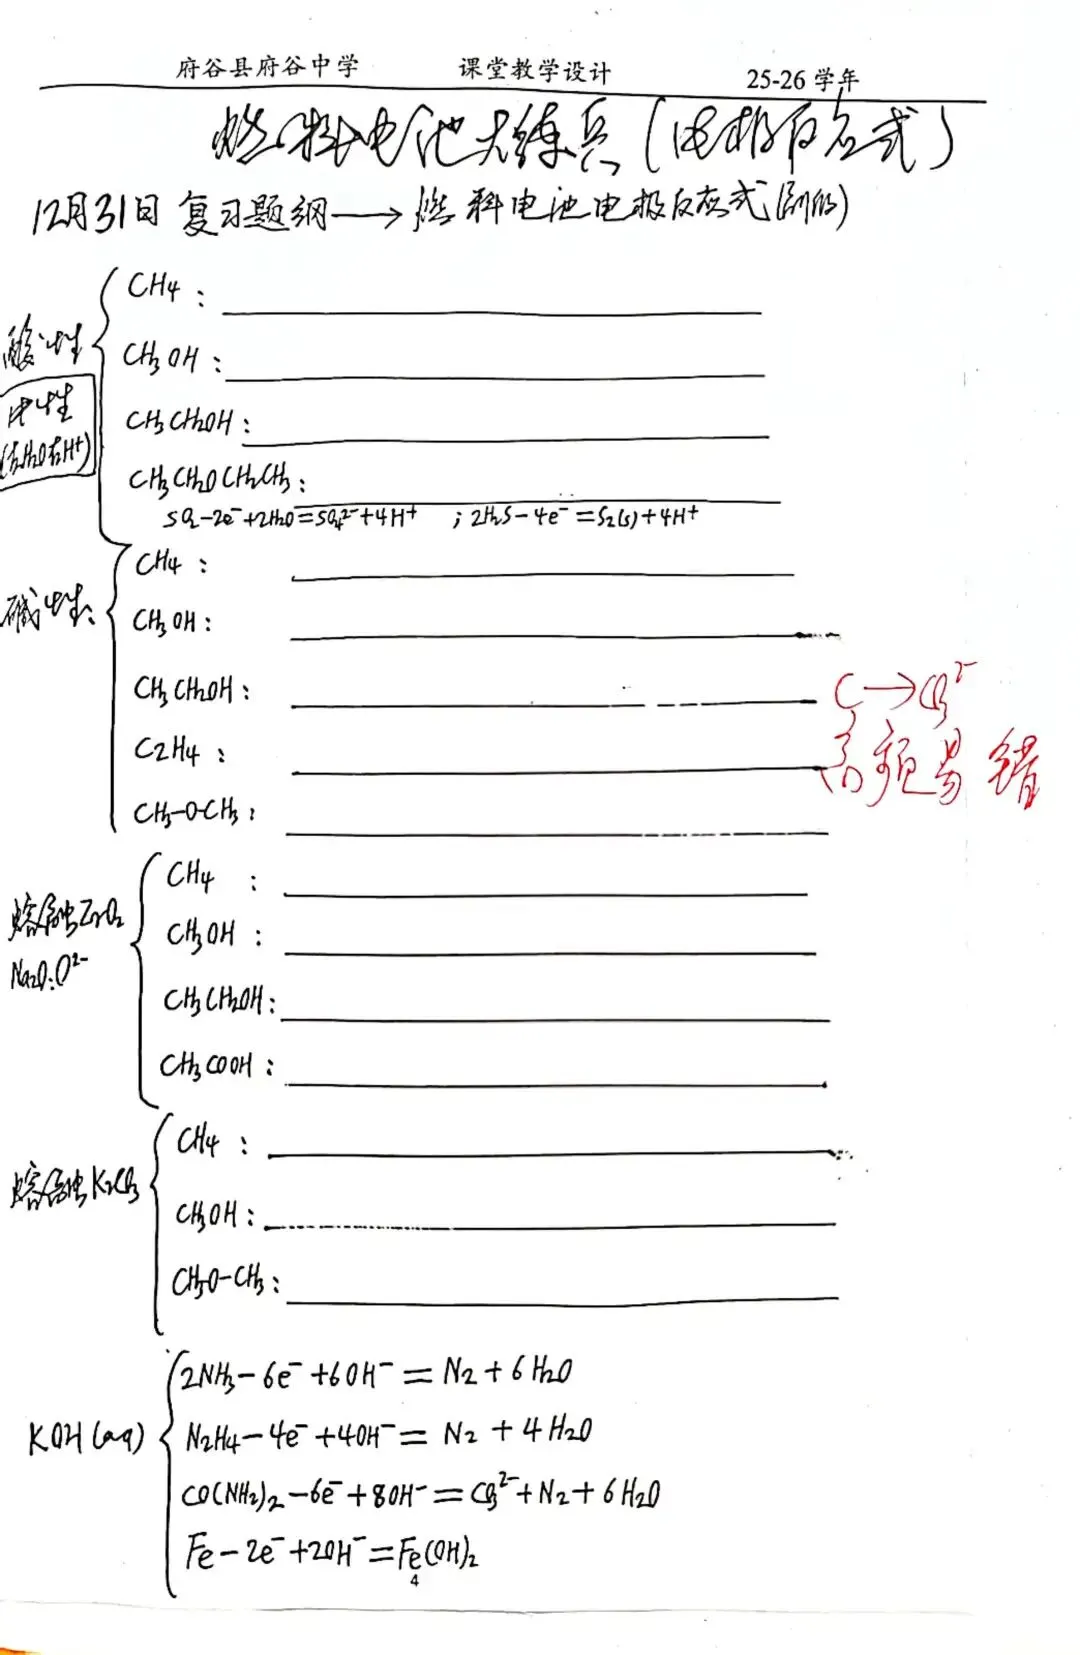 府谷县府谷中学 课堂教学设计 25-26 学年
燃料电池大练兵(电极反应式)
12月31日 复习题纲→燃料电池电极反应式
酸性
中性
CH4:
CH3OH:
CH3CH2OH:
CH3CH2OCH2CH3:
SO2-2e⁻+2H2O=SO4²⁻+4H⁺ ; 2H2S-4e⁻=S2(s)+4H⁺
碱性:
CH4:
CH3OH:
CH3CH2OH:
C→CO3²⁻
C2H4:
高频易错
CH3-O-CH3:
熔融ZrO2
Na2O:O²⁻
CH4:
CH3OH:
CH3CH2OH:
CH3COOH:
熔融K2CO3
CH4:
CH3OH:
CH3O-CH3:
KOH(aq)
2NH3-6e⁻+6OH⁻=N2+6H2O
N2H4-4e⁻+4OH⁻=N2+4H2O
CO(NH2)2-6e⁻+8OH⁻=CO3²⁻+N2+6H2O
Fe-2e⁻+2OH⁻=Fe(OH)2
4